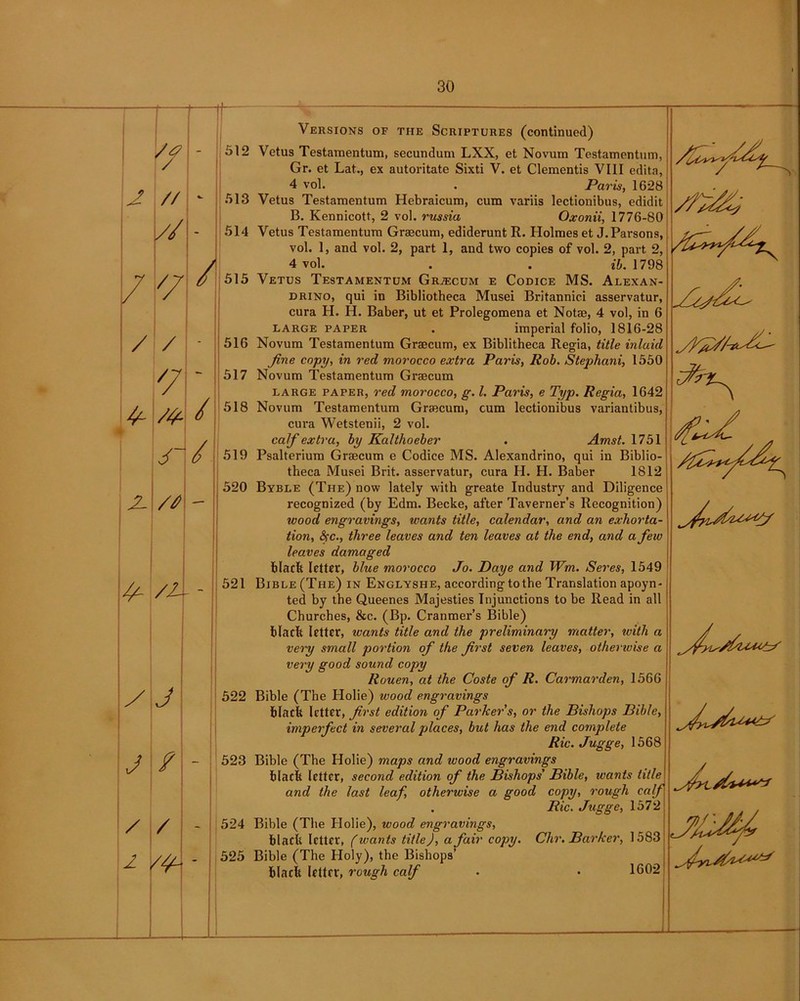 30
Versions of the Scriptures (continued)
19 - 512 Vetus Testamentum, secundum LXX, et Novum Testamentum,
Gr. et Lat., ex autoritate Sixti V. et Clementis VIII edita,
4 vol. . Paris, 1628
2 11 - 513 Vetus Testamentum Hebraicum, cum variis lectionibus, edidit
B. Kennicott, 2 vol. russia Oxonii, 1776-80
514 Vetus Testamentum Græcum, ediderunt R. Holmes et J. Parsons,
vol. 1, and vol. 2, part 1, and two copies of vol. 2, part 2,
4 vol. . . ib. 1798
7 17 515 Vetus Testamentum Græcum e Codice MS. Alexan-
drino, qui in Bibliotheca Musei Britannici asservatur,
cura H. H. Baber, ut et Prolegomena et Notæ, 4 vol, in 6
large paper . imperial folio, 1816-28
1 1 - 516 Novum Testamentum Græcum, ex Biblitheca Regia, title inlaid
fine copy, in red morocco extra Paris, Rob. Stephani, 1550
17 - 517 Novum Testamentum Græcum
large paper, red morocco, g. l. Paris, e Typ. Regia, 1642
4 14 518 Novum Testamentum Græcum, cum lectionibus variantibus,
cura Wetstenii, 2 vol.
calf extra, by Kalthoeber . Amst. 1751
5 6 519 Psalterium Græcum e Codice MS. Alexandrino, qui in Biblio-
theca Musei Brit. asservatur, cura H. H. Baber 1812
520 Byble (The) now lately with greate Industry and Diligence
2 10 - recognized (by Edm. Becke, after Taverner's Recognition)
wood engravings, wants title, calendar, and an exhorta-
tion, &c., three leaves and ten leaves at the end, and a few
leaves damaged
black letter, blue morocco Jo. Daye and Wm. Seres, 1549
4 12 - 521 Bible (The) in Englyshe, according to the Translation apoyn-
ted by the Queenes Majesties Injunctions to be Read in all
Churches, &c. (Bp. Cranmer's Bible)
black letter, wants title and the preliminary matter, with a
very small portion of the first seven leaves, otherwise a
very good sound copy
Rouen, at the Coste of R. Carmarden, 1566
1 3 522 Bible (The Holie) wood engravings
black letter, first edition of Parker's, or the Bishops Bible,
imperfect in several places, but has the end complete
Ric. Jugge, 1568
3 8 - 523 Bible (The Holie) maps and wood engravings
black letter, second edition of the Bishops' Bible, wants title
and the last leaf, otherwise a good copy, rough calf
. Ric. Jugge, 1572
1 1 - 524 Bible (The Holie), wood engravings,
black letter, (wants title), a fair copy. Chr. Barker, 1583
2 14 - 525 Bible (The Holy), the Bishops'
black letter, rough calf . . 1602